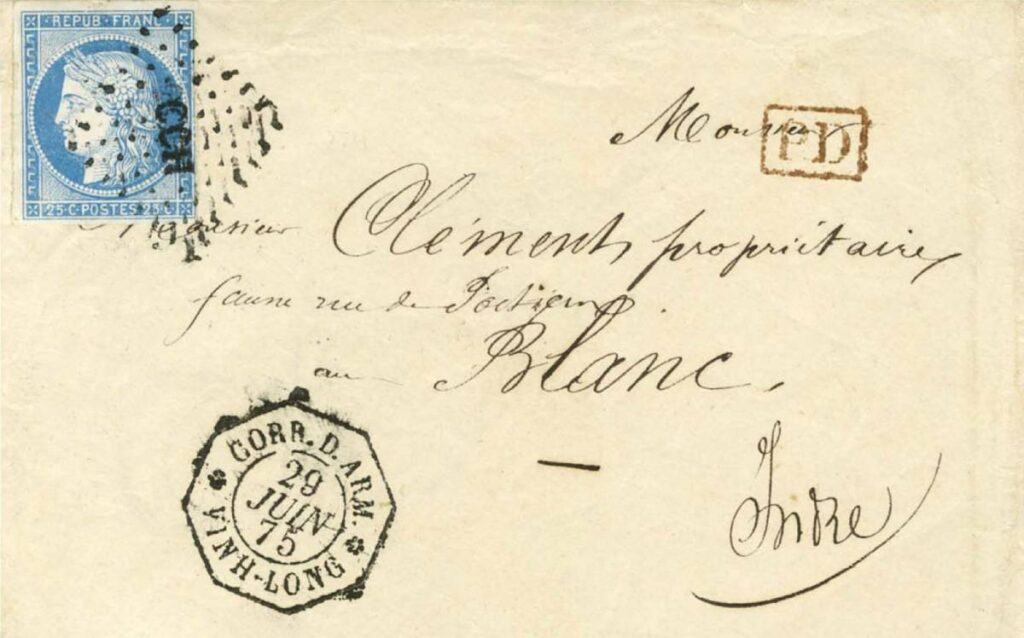 REPUB·FRANC·
25·C·POSTES·25·C
CCH
PD
Monsieur
Monsieur Cléments propriétaire
rue de
au Blanc.
Indre
CORR. D. ARM.
29
JUIN
75
VINH-LONG